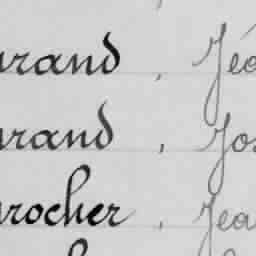 urand, Jéo
urand, Jos
urocher, Jea